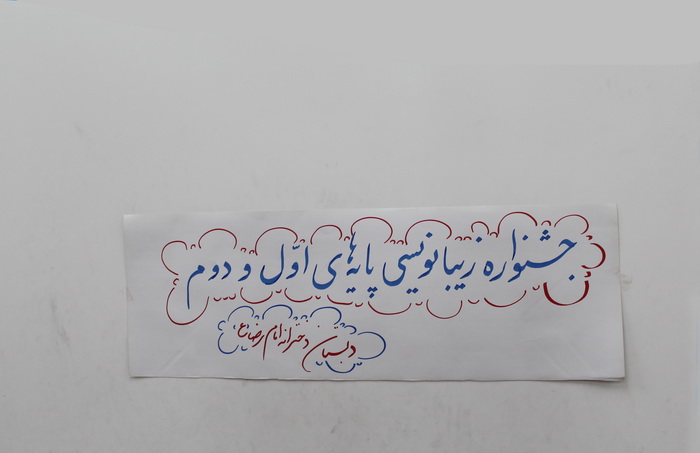 جشنواره زیبانویسی پایه‌های اوّل و دوم
دبستان دخترانه امام رضا ع